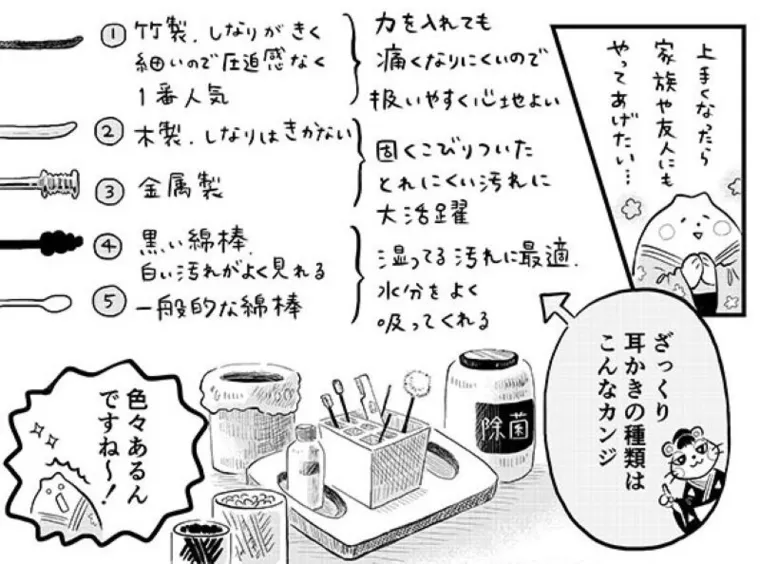 上手くなったら
家族や友人にも
やってあげたい…
ざっくり
耳かきの種類は
こんなカンジ
① 竹製.しなりがきく
細いので圧迫感なく
1番人気
力を入れても
痛くなりにくいので
扱いやすく心地よい
② 木製.しなりはきかない
③ 金属製
固くこびりついた
とれにくい汚れに
大活躍
④ 黒い綿棒.
白い汚れがよく見れる
⑤ 一般的な綿棒
湿ってる汚れに最適.
水分をよく
吸ってくれる
除菌
色々あるん
ですね〜!